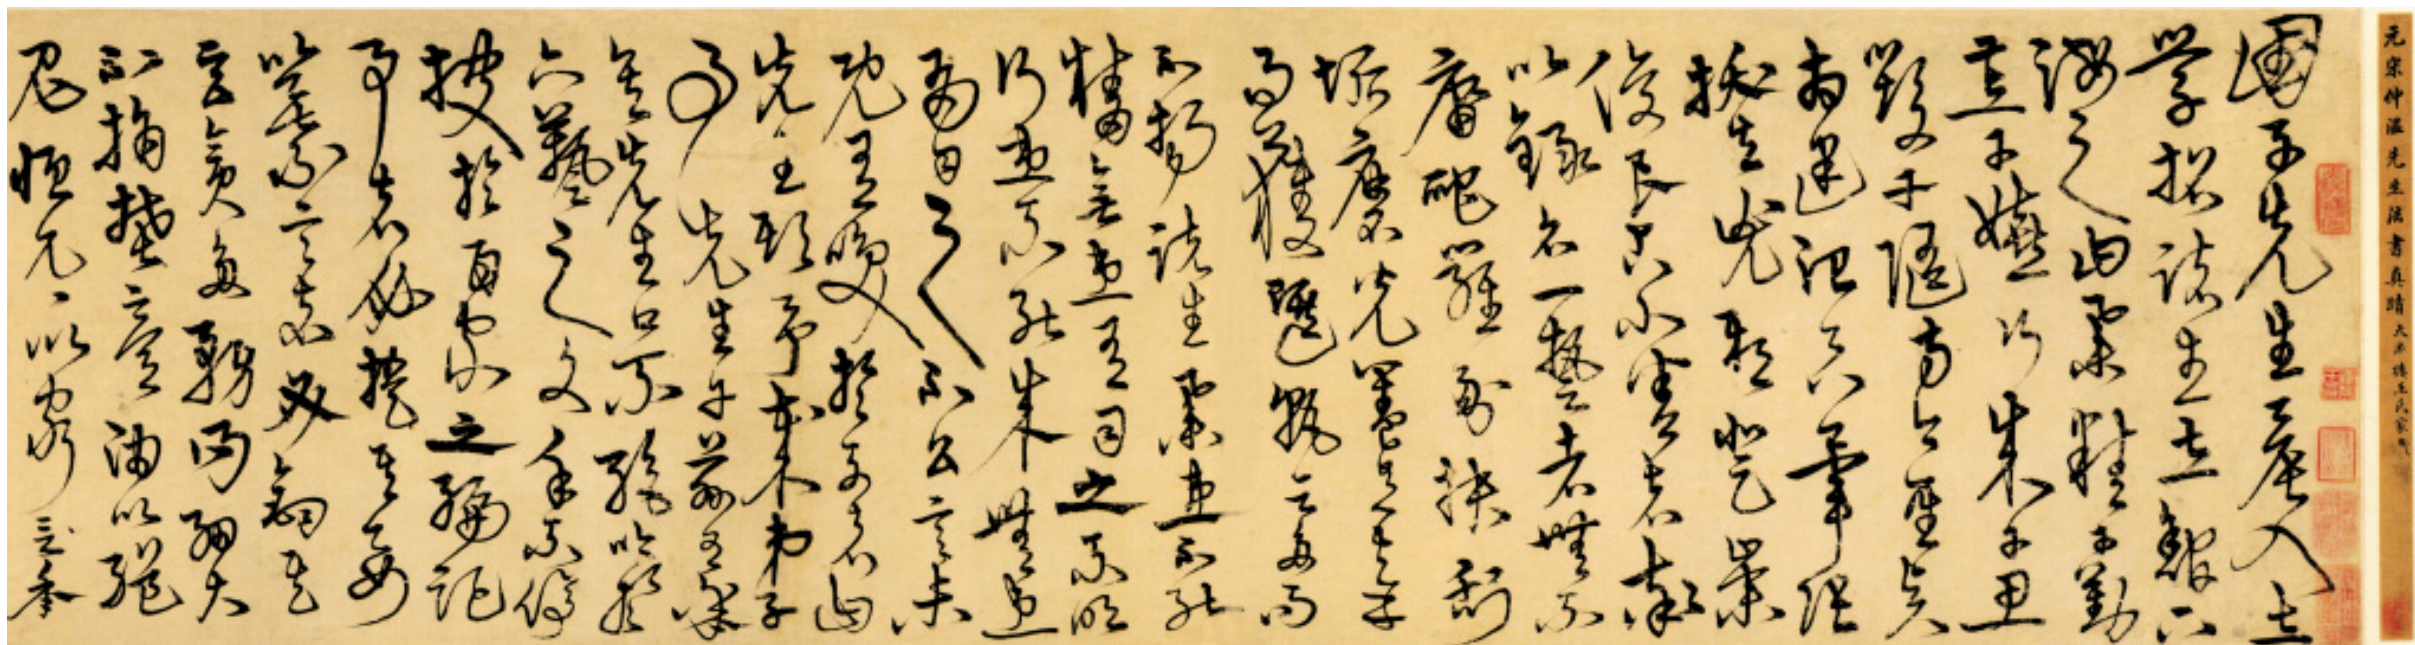 元宋仲温先生法書真蹟
國子先生晨入太
學招諸生立館下
誨之曰業精于勤
荒于嬉行成于思
毀于隨方今聖賢
相逢治具畢張
拔去兇邪登崇
俊良占小善者率
以錄名一藝者無不
庸爬羅剔抉刮
垢磨光蓋有幸
而獲選孰云多而
不揚諸生業患不能
精無患有司之不明
行患不能成無患
有司之不公言未
既有笑於列者曰
先生欺予哉弟子
事先生于茲有年
矣先生口不絕吟於
六藝之文手不停
披於百家之編記
事者必提其要
纂言者必鉤其
玄貪多務得細大
不捐焚膏油以繼
晷恒兀〻以窮年